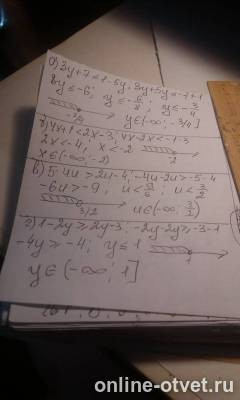 а) 3y+7≤1-5y; 3y+5y≤-7+1
8y≤-6; y≤-6/8; y≤-3/4
-3/4 y∈(-∞; -3/4]
б) 4x+1<2x-3; 4x-2x<-1-3
2x<-4; x<-2 -2
x∈(-∞; -2)
в) 5-4u>2u-4; -4u-2u>-5-4
-6u>-9; u<9/6; u<3/2
3/2 u∈(-∞; 3/2)
г) 1-2y≥2y-3; -2y-2y≥-3-1
-4y≥-4; y≤1 1
y∈(-∞; 1]
online-otvet.ru